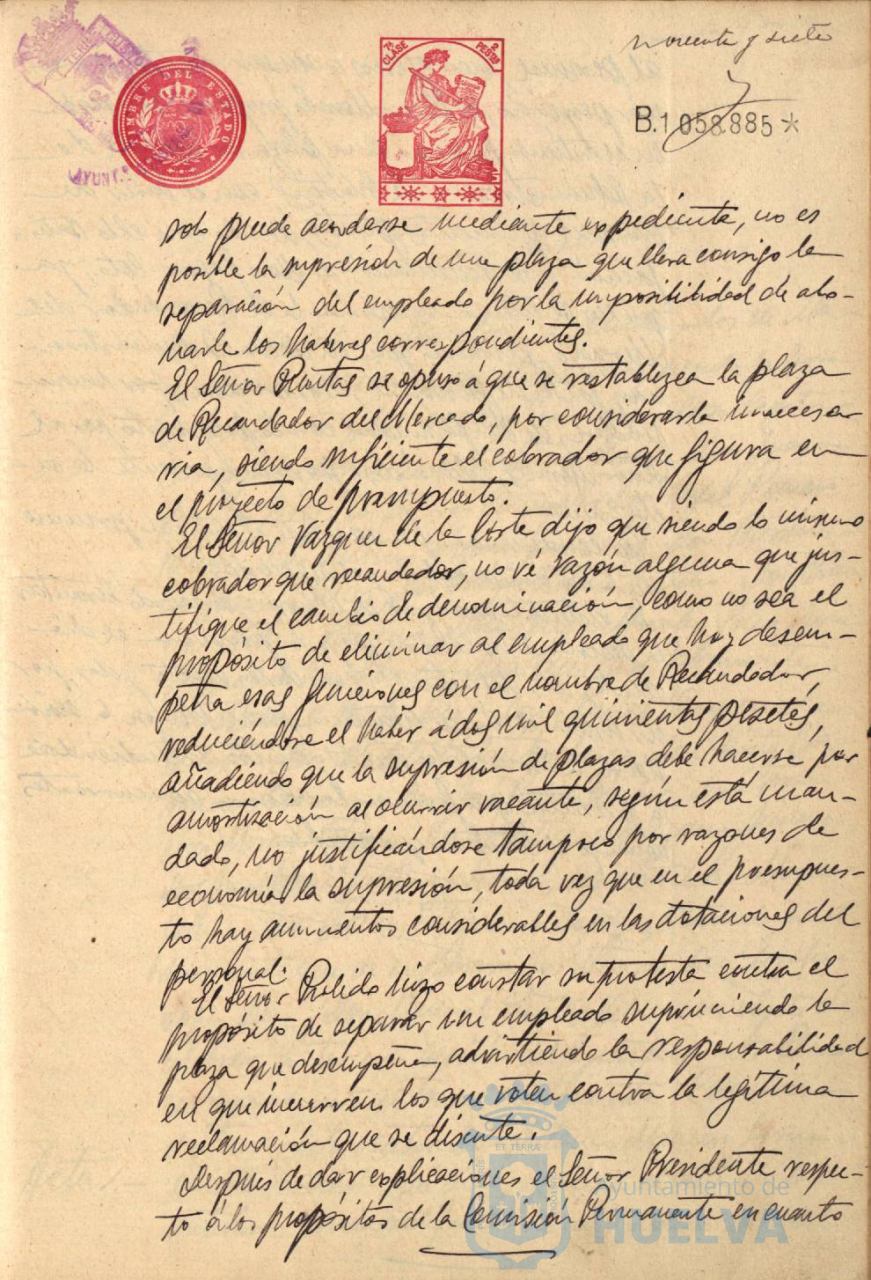 noventa y siete
7ª CLASE
2 PESTAS
TIMBRE DEL ESTADO
AYUNTº
B.1058.885*
solo puede acordarse mediante expediente, no es
posible la supresión de una plaza que lleva consigo la
separación del empleado por la imposibilidad de abo-
narle los haberes correspondientes.
El Señor Puntas se opuso á que se restablezca la plaza
de Recaudador del Mercado, por considerarla innecesa-
ria, siendo suficiente el cobrador que figura en
el proyecto de presupuesto.
El Señor Vazquez de la Corte dijo que siendo lo mismo
cobrador que recaudador, no vé razón alguna que jus-
tifique el cambio de denominación, como no sea el
propósito de eliminar al empleado que hoy desem-
peña esas funciones con el nombre de Recaudador,
reduciéndose el haber á dos mil quinientas pesetas,
añadiendo que la supresión de plazas debe hacerse por
amortización al ocurrir vacante, según está man-
dado, no justificándose tampoco por razones de
economía la supresión, toda vez que en el presupues-
to hay aumentos considerables en las dotaciones del
personal.
El Señor Pulido hizo constar su protesta contra el
propósito de separar un empleado suprimiendo la
plaza que desempeña, advirtiendo la responsabilidad
en que incurren los que voten contra la legítima
reclamación que se discute.
Después de dar explicaciones el Señor Presidente respec-
to á los propósitos de la Comisión Permanente en cuanto
Ayuntamiento de
HUELVA